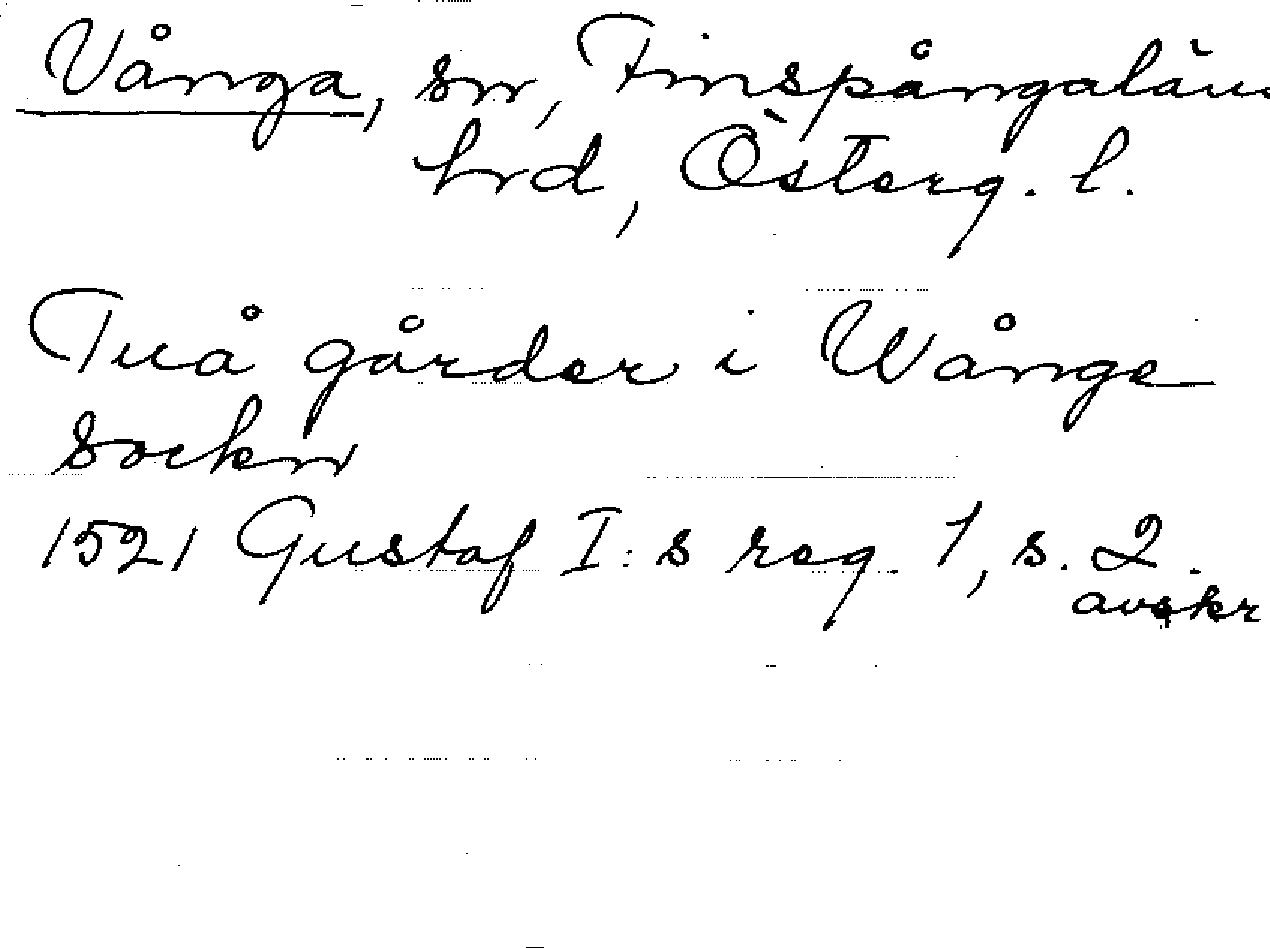 Vånga, sn, Finspångaläns
hrd, Österg. l.
Tuå gårder i Wånge
sockn
1521 Gustaf I:s reg. 1, s. 2.
avskr